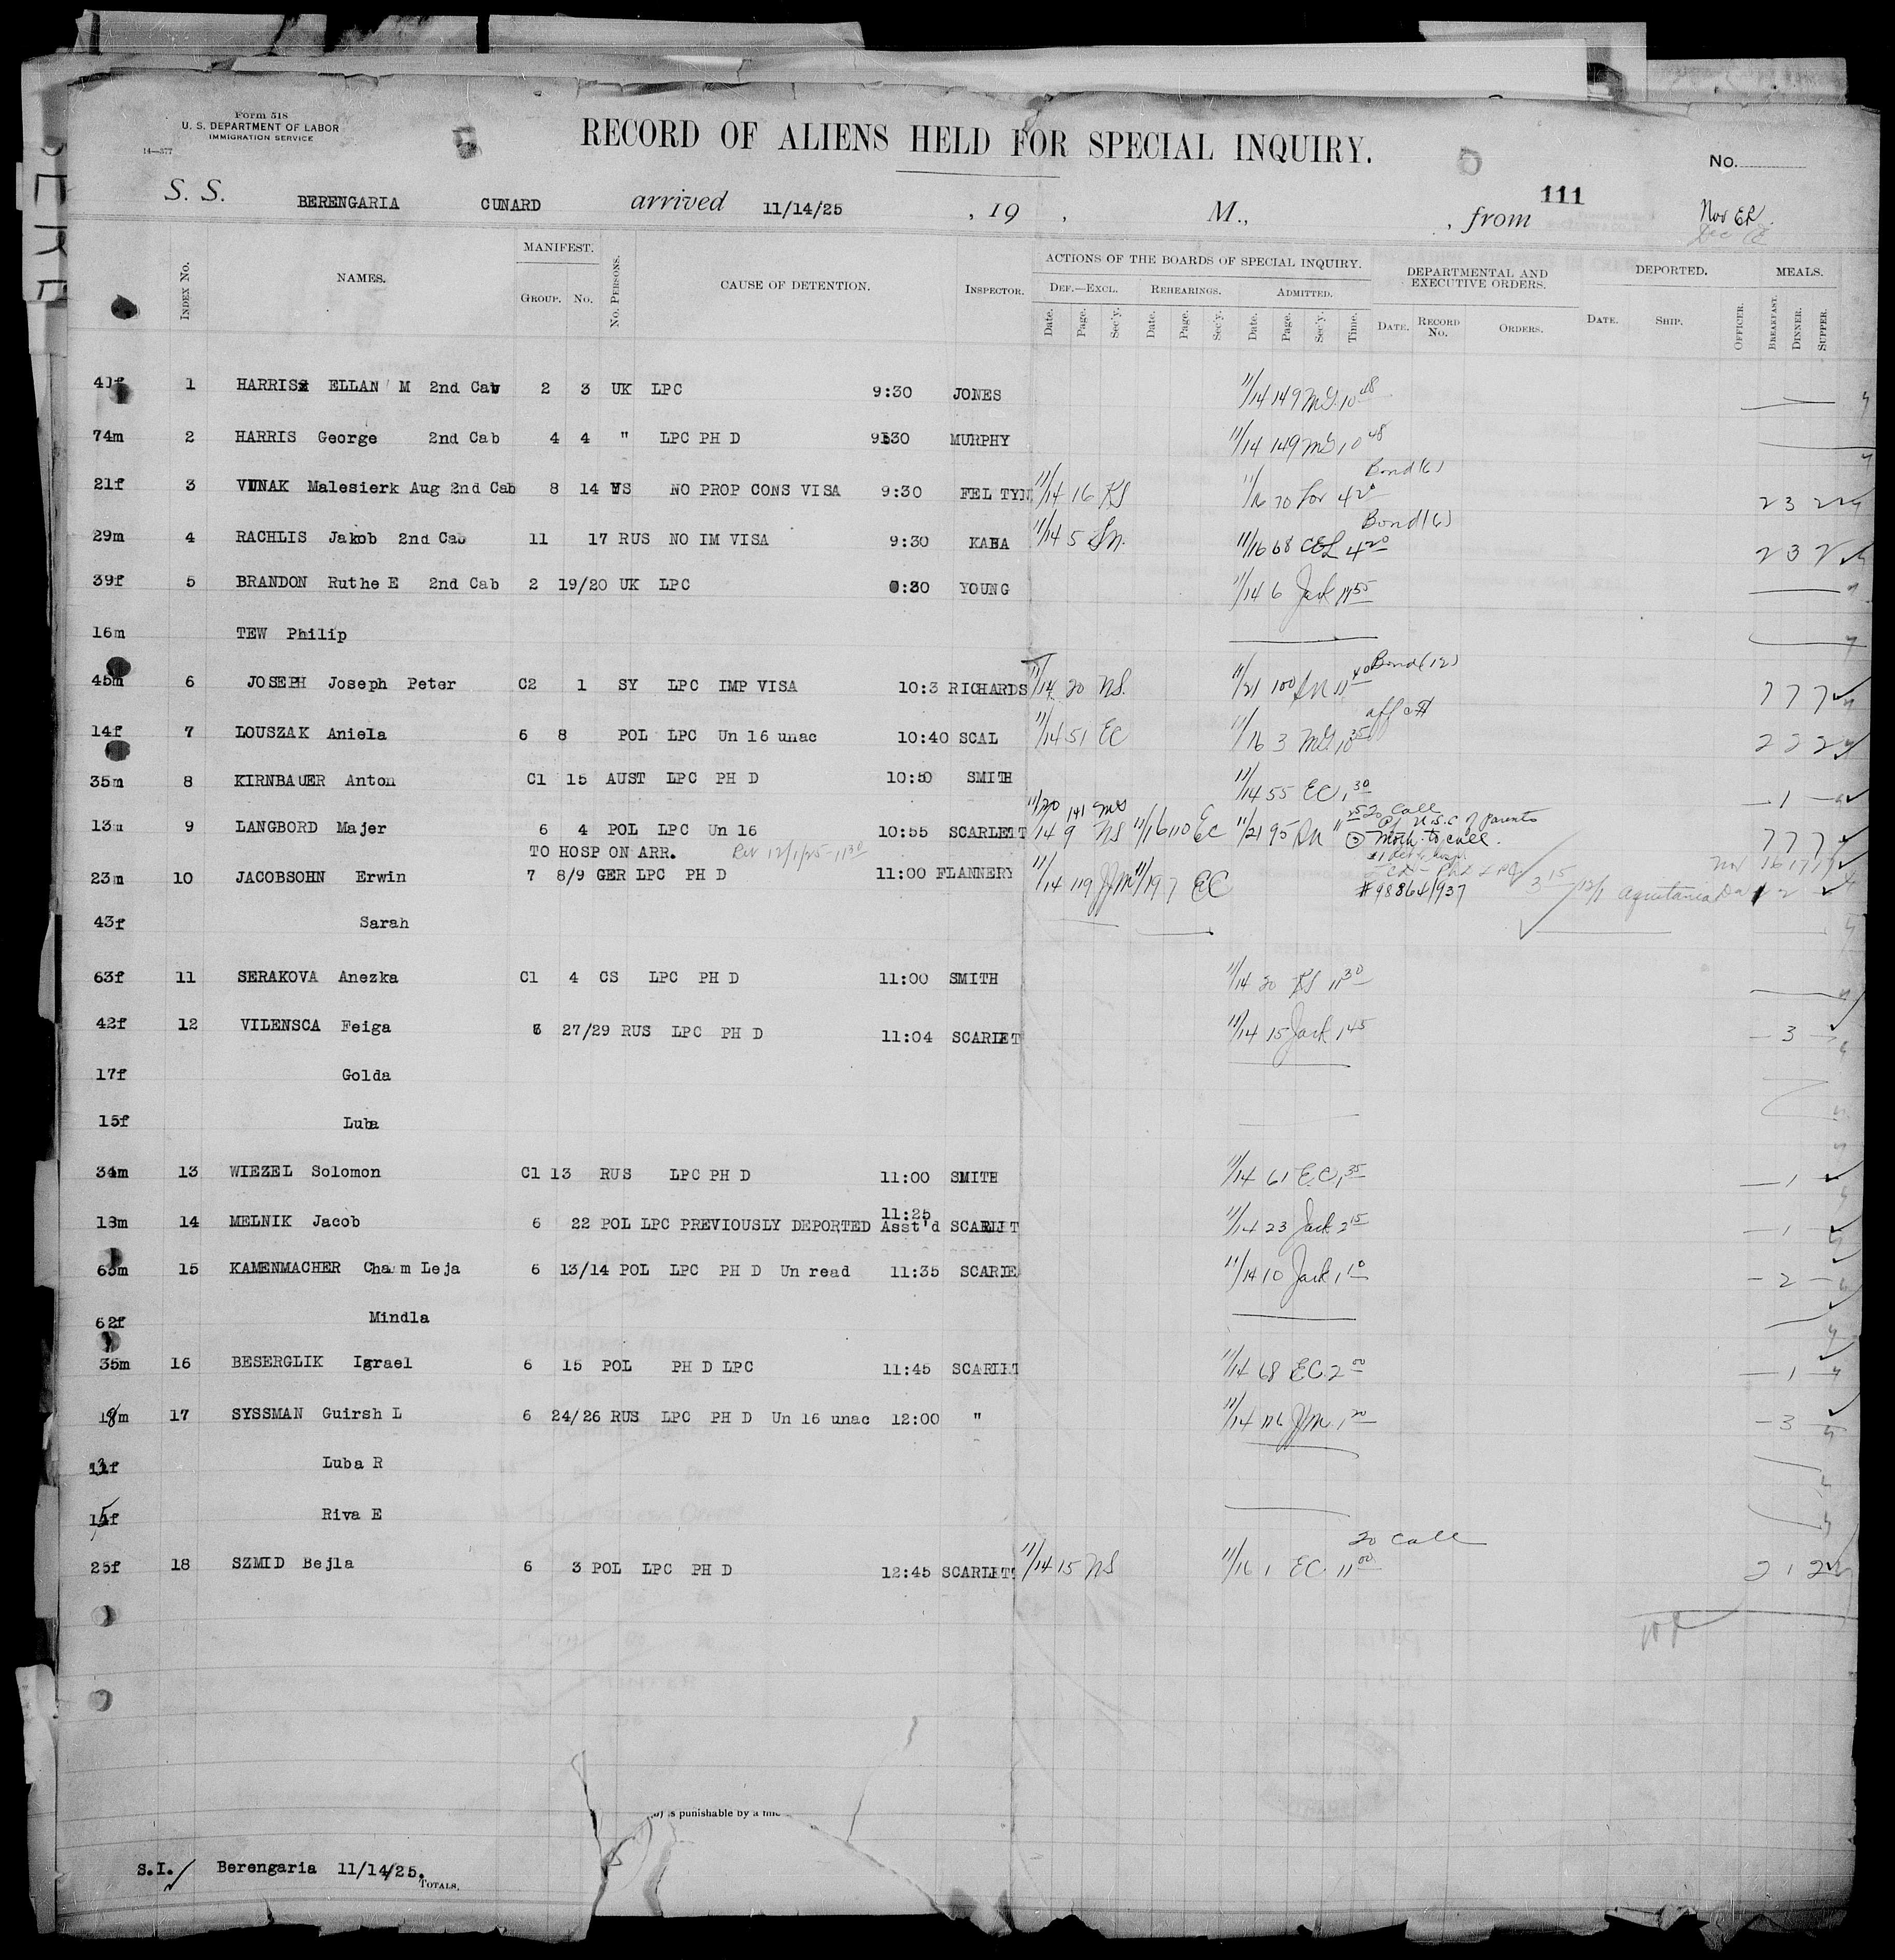 Form 518
U. S. DEPARTMENT OF LABOR
IMMIGRATION SERVICE
14—577
RECORD OF ALIENS HELD FOR SPECIAL INQUIRY.
No.
111
S. S. BERENGARIA CUNARD arrived 11/14/25, 19 , M., , from
Nov ER.
INDEX No. NAMES. MANIFEST. GROUP. No. No. PERSONS. CAUSE OF DETENTION. INSPECTOR.
ACTIONS OF THE BOARDS OF SPECIAL INQUIRY. DEPARTMENTAL AND EXECUTIVE ORDERS. DEPORTED. MEALS.
DEF.—EXCL. REHEARINGS. ADMITTED.
Date. Page. Sec'y. Date. Page. Sec'y. Date. Page. Sec'y. Time. DATE. RECORD No. ORDERS. DATE. SHIP. OFFICER. BREAKFAST. DINNER. SUPPER.
1 HARRIS ELLAN M 2nd Cab 2 3 UK LPC 9:30 JONES 11/14 149 10 48
74m 2 HARRIS George 2nd Cab 4 4 " LPC PH D 9:30 MURPHY 11/14 149 10 48
Bond (6)
21f 3 VUNAK Malesierk Aug 2nd Cab 8 14 NO PROP CONS VISA 9:30 FEL TYN 11/14 16 KS 11/16 70 4 20 2 3 2
Bond (6)
29m 4 RACHLIS Jakob 2nd Cab 11 17 RUS NO IM VISA 9:30 KABA 11/14 5 11/16 68 4 20 2 3 2
39f 5 BRANDON Ruthe E 2nd Cab 2 19/20 UK LPC :30 YOUNG 11/14 6 Jack
16m TEW Philip
Bond (12)
45m 6 JOSEPH Joseph Peter C2 1 SY LPC IMP VISA 10:3 RICHARDS 11/14 20 NS. 11/21 100 7 7 7
14f 7 LOUSZAK Aniela 6 8 POL LPC Un 16 unac 10:40 SCAL 11/14 51 EC 11/16 3 10 35 2 2 2
35m 8 KIRNBAUER Anton C1 15 AUST LPC PH D 10:50 SMITH 11/14 55 EC 1 30 1
11/20 141
13m 9 LANGBORD Majer 6 4 POL LPC Un 16 10:55 SCARLETT 14 9 NS 11/16 110 EC 11/21 95 7 7 7
TO HOSP ON ARR. 12/1/25
23m 10 JACOBSOHN Erwin 7 8/9 GER LPC PH D 11:00 FLANNERY 11/14 119 11/19 7 EC #98864/937 3 15 12/1 Aquitania
43f Sarah
63f 11 SERAKOVA Anezka C1 4 CS LPC PH D 11:00 SMITH 11/14 20 KS 11 30
42f 12 VILENSCA Feiga 6 27/29 RUS LPC PH D 11:04 SCARLET 11/14 15 Jack 1 45 3
17f Golda
15f Luba
34m 13 WIEZEL Solomon C1 13 RUS LPC PH D 11:00 SMITH 11/14 61 EC 1 35 1
11:25
18m 14 MELNIK Jacob 6 22 POL LPC PREVIOUSLY DEPORTED Asst'd SCARLET 11/14 23 Jack 2 15 1
15 KAMENMACHER Chaim Leja 6 13/14 POL LPC PH D Un read 11:35 SCARLE 11/14 10 Jack 1 10 2
62f Mindla
35m 16 BESERGLIK Igrael 6 15 POL PH D LPC 11:45 SCARLET 11/14 68 EC 2 00 1
17 SYSSMAN Guirsh L 6 24/26 RUS LPC PH D Un 16 unac 12:00 " 11/14 116 1 20 3
Luba R
Riva E
20 Call
25f 18 SZMID Bejla 6 3 POL LPC PH D 12:45 SCARLETT 11/14 15 NS 11/16 1 EC 11 00 2 1 2
is punishable by a
S.I. Berengaria 11/14/25.
TOTALS.